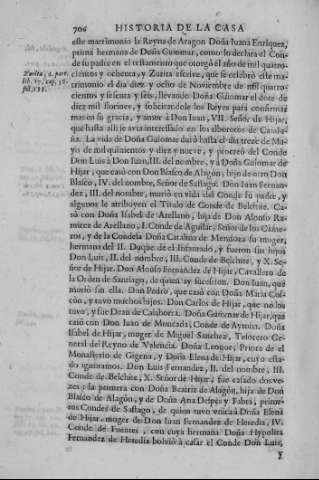 706 HISTORIA DE LA CASA
este matrimonio la Reyna de Aragon Doña Iuana Enriquez,
prima hermana de Doña Guiomar, como lo declara el Conde
de su padre en el testamento que otorgó el año de mil quatrocientos
y ochenta, y Zurita escrive, que se celebró este matrimonio
Zurita, 2. part.
lib. 17. cap.
fol.
el dia diez y ocho de Noviembre de mil quatrocientos
y sesenta y seis, llevando Doña Guiomar el dote de
diez mil florines, y solicitandole los Reyes para confirmar
mas en su gracia, y amor à Don Iuan, VII. Señor de Hijar,
que hasta alli se avia interessado en los alborotos de Cataluña.
La vida de Doña Guiomar duró hasta el dia treze de Mayo
de mil quinientos y diez y nueve, y procreó del Conde
Don Luis à Don Iuan, III. del nombre, y à Doña Guiomar de
Hijar, que casó con Don Blasco de Alagón, hijo de otro Don
Blasco, IV. del nombre, Señor de Sastago. Don Iuan Fernandez,
III. del nombre, murió en vida del Conde su padre, y
algunos le atribuyen el Titulo de Conde de Belchite. Casó
con Doña Isabel de Arellano, hija de Don Alonso Ramirez
de Arellano, I. Conde de Aguilar, Señor de los Cameros,
y de la Condesa Doña Catalina de Mendoza su muger,
hermana del II. Duque del Infantado, y fueron sus hijos
Don Luis, II. del nombre, III. Conde de Belchite, y X. Señor
de Hijar. Don Alonso Fernandez de Hijar, Cavallero de
la Orden de Santiago, de quien ay sucession. Don Iuan, que
murió sin ella. Don Pedro, que casó con Doña Maria
y tuvo muchos hijos. Don Carlos de Hijar, que no los
tuvo, y fue Dean de Calahorra. Doña Guiomar de Hijar, que
casó con Don Iuan de Moncada, Conde de Aytona. Doña
Isabel de Hijar, muger de Miguel Sanchez, Tesorero General
del Reyno de Valencia. Doña Leonor, Priora de el
Monasterio de Gigena, y Doña Elena de Hijar, cuyo estado
ignoramos. Don Luis Fernandez, II. del nombre, III.
Conde de Belchite, X. Señor de Hijar, fue casado dos vezes:
la primera con Doña Beatriz de Alagón, hija de Don
Blasco de Alagón, y de Doña Ana Despés y Fabra, primeros
Condes de Sastago, de quien tuvo vnica à Doña Elena
de Hijar, muger de Don Iuan Fernandez de Heredia, IV.
Conde de Fuentes, con cuya hermana Doña Hypolita
Fernandez de Heredia bolvió à casar el Conde Don Luis,
Y